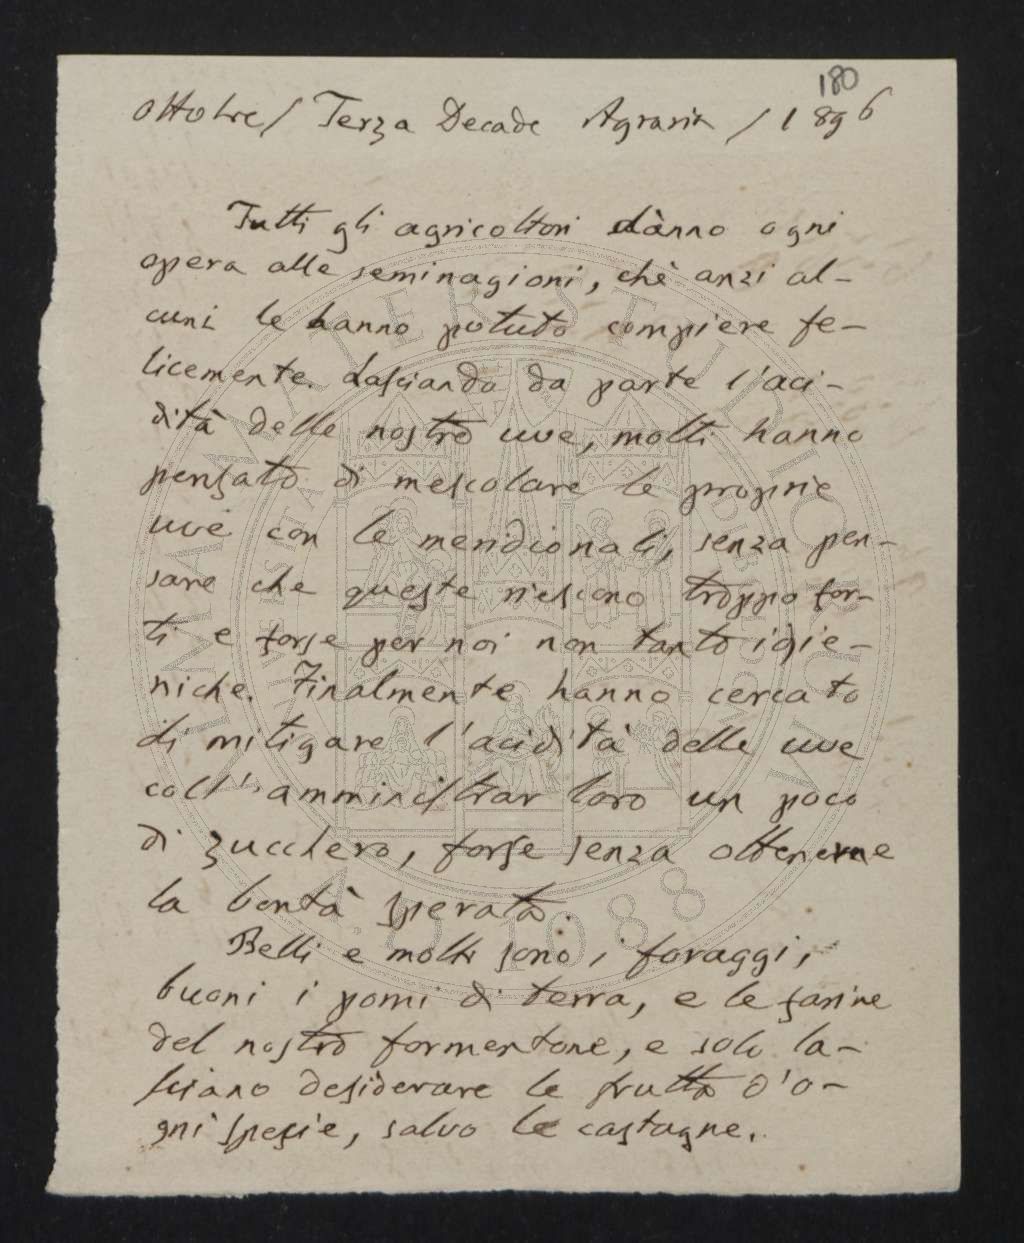 180
Ottobre / Terza Decade Agraria / 1896
Tutti gli agricoltori dànno ogni
opera alle seminagioni, chè anzi al-
cuni le hanno potuto compiere fe-
licemente. Lasciando da parte l'aci-
dità delle nostre uve, molti hanno
pensato di mescolare le proprie
uve con le meridionali, senza pen-
sare che queste riescono troppo for-
ti e forse per noi non tanto igie-
niche. Finalmente hanno cercato
di mitigare l'acidità delle uve
coll'amministrar loro un poco
di zucchero, forse senza ottenerne
la bontà sperata.
Belli e molti sono i foraggi,
buoni i pomi di terra, e le farine
del nostro formentone, e solo la-
sciano desiderare le frutta d'o-
gni spezie, salvo le castagne.
ALMA MATER STUDIORUM
A.D. 1088